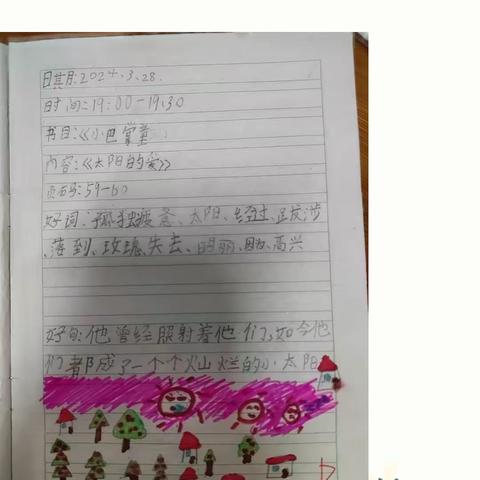 日其月:2024.3.28.
时间:19:00-19:30
书目:《小巴掌童
内容:《太阳的爱》
页石马:59-60
好词:孤独疲惫、太阳、经过、跋涉
、落到、玫瑰失去、明丽、因为、高兴
好句:他曾经照射着他们,如今他
们都成了一个个火山烂的小太阳